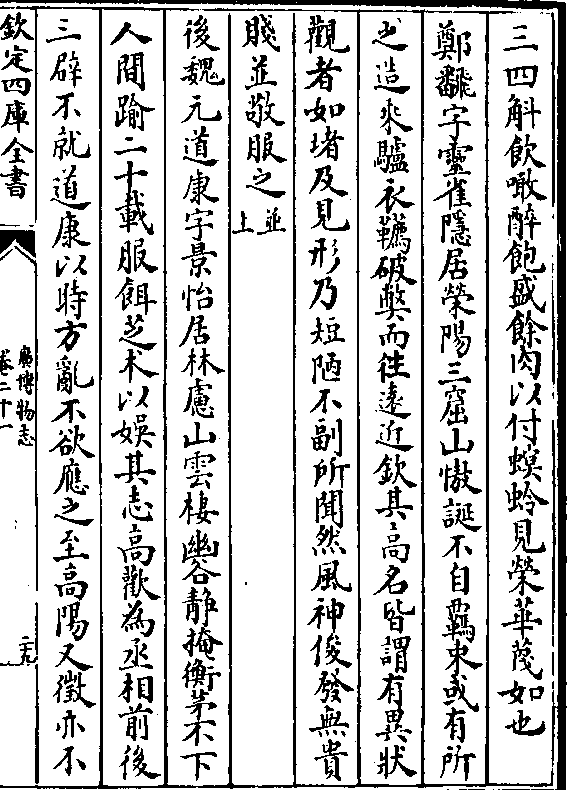 三四斛飲噉醉飽盛餘肉以付螟蛉見榮華蔑如也
鄭翻字靈雀隱居滎陽三窟山傲誕不自羈束或有所
造乘驢衣韉破獘而往遠近欽其高名皆謂有異狀
觀者如堵及見形乃短陋不副所聞然風神俊發無貴
賤並敬服之並上
後魏元道康字景怡居林慮山雲棲幽谷靜掩衡茅不下
人間踰二十載服餌芝术以娛其志高歡為丞相前後
三辟不就道康以時方亂不欲應之至高陽又徵亦不
欽定四庫全書
廣博物志
卷二十一
二十九